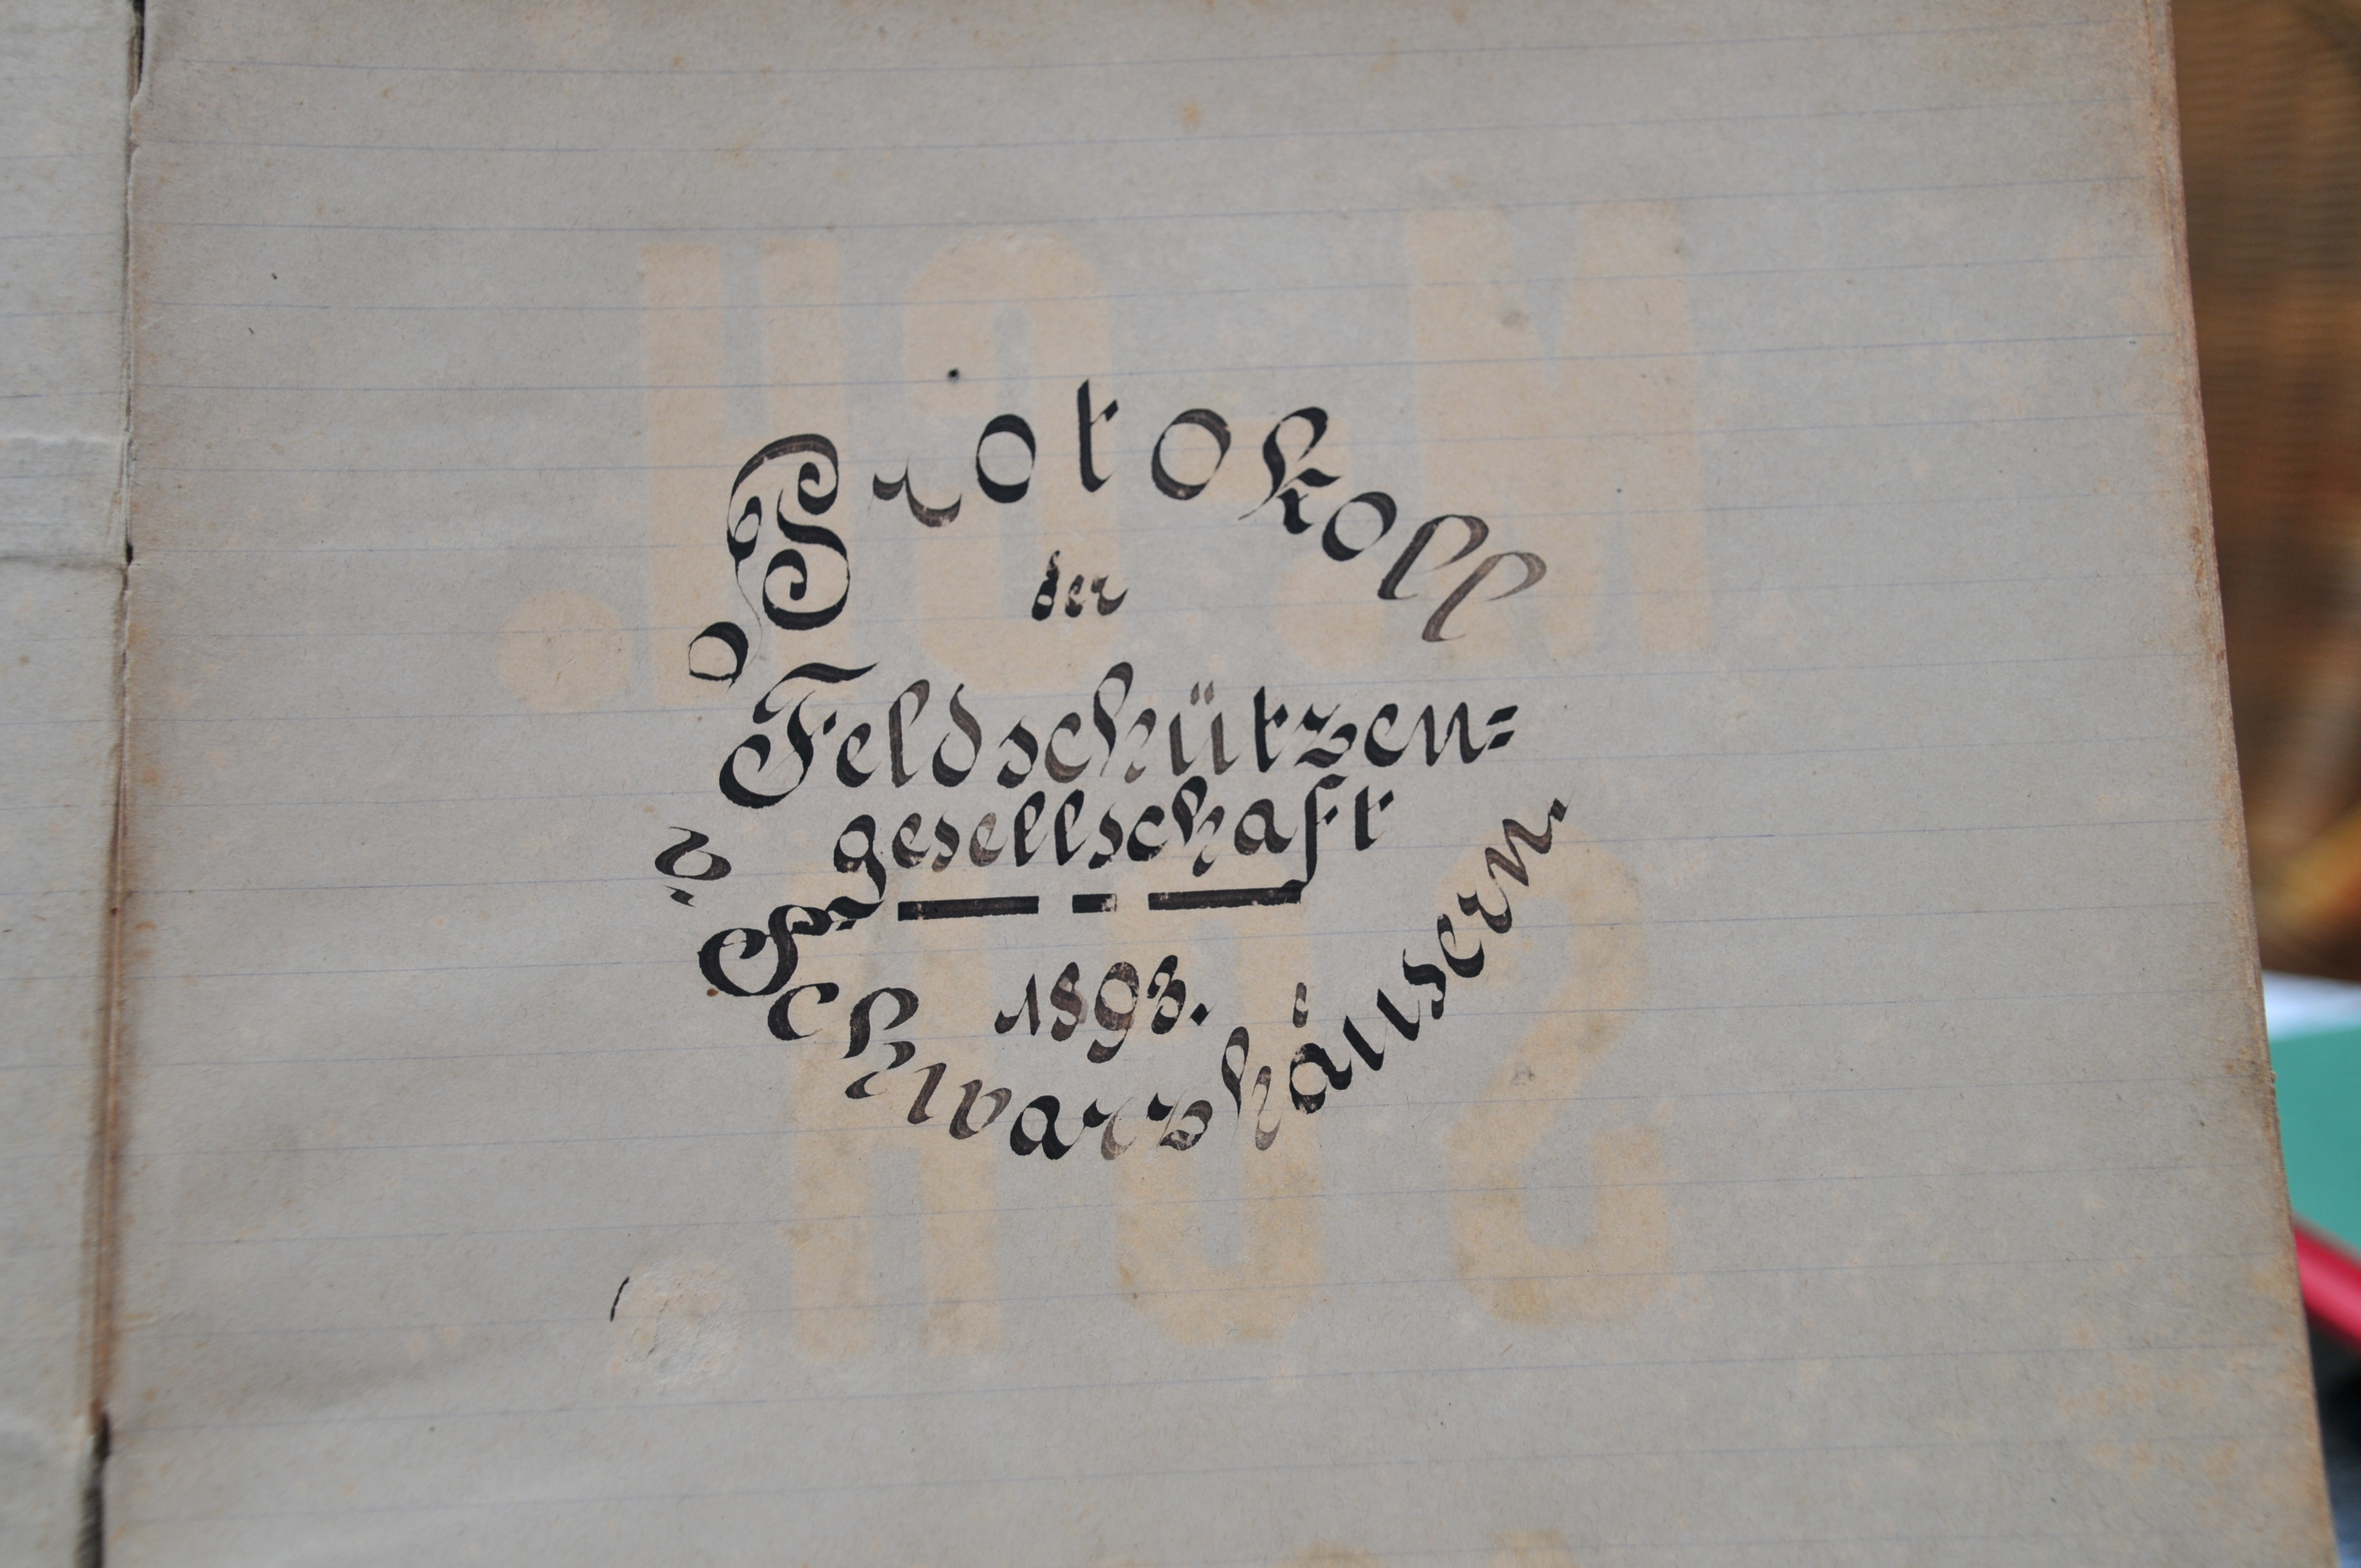 Protokoll
der
Feldschützen=
gesellschaft
1893.
Schwarzhäusern.